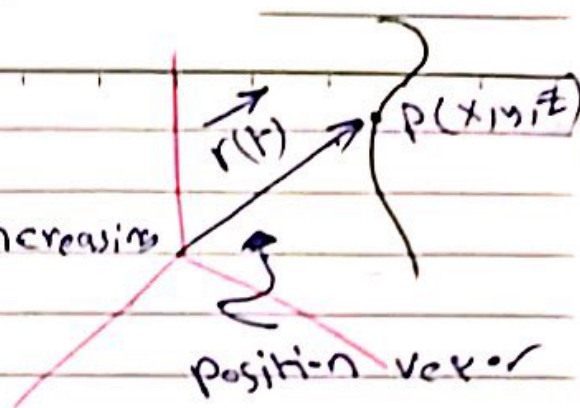 r(t)
p(x,y,z)
ncreasing
position vector